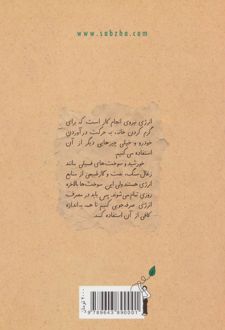 www.sabzha.com
انرژی نیروی انجام کار است که برای
گرم کردن خانه، به حرکت درآوردن
خودرو و خیلی چیزهای دیگر از آن
استفاده می‌کنیم.
خورشید و سوخت‌های فسیلی مانند
زغال سنگ، نفت و گاز طبیعی از منابع
انرژی هستند ولی این سوخت‌ها بالاخره
روزی تمام می‌شوند. پس باید در مصرف
انرژی صرفه‌جویی کنیم تا همه به اندازه
کافی از آن استفاده کنند.